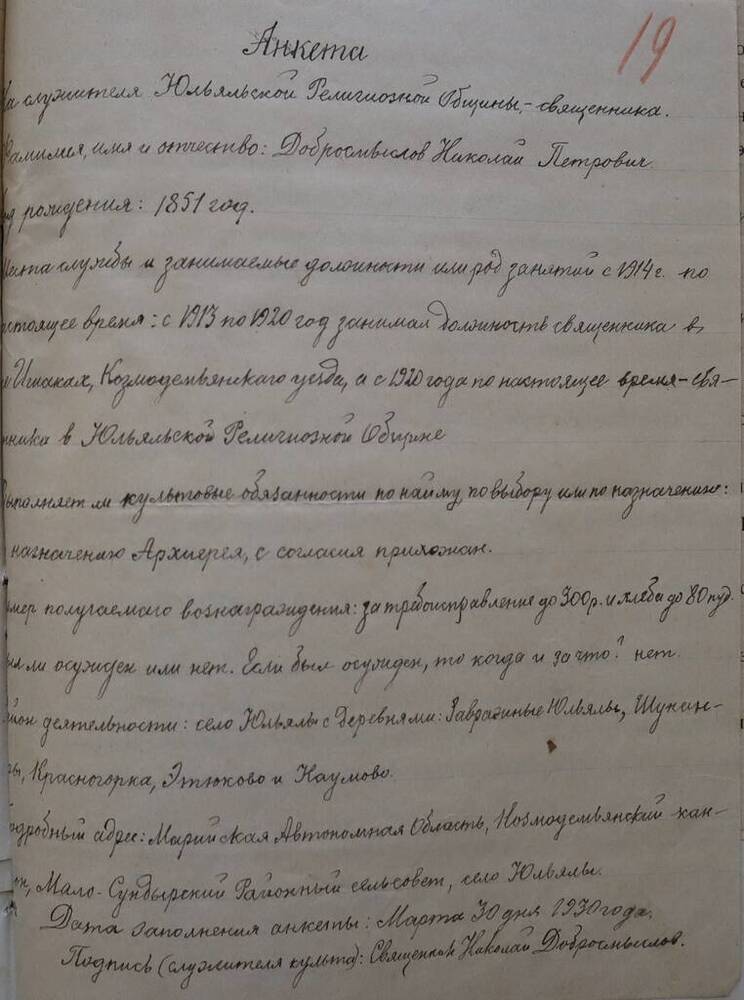 19
Анкета
служителя Юльяльской Религиозной Общины, - священника.
Фамилия, имя и отчество: Добросмыслов Николай Петрович
рождения: 1851 год.
службы и занимаемые должности или род занятий с 1914 г. по
время: с 1913 по 1920 год занимал должность священника в
Козмодемьянского уезда, а с 1920 года по настоящее время - свя-
в Юльяльской Религиозной Общине
культовые обязанности по найму, по выбору или по назначению:
Архиерея, с согласия прихожан.
получаемого вознаграждения: за требоисправления до 300 р. и хлеба до 80 пуд.
осужден или нет. Если был осужден, то когда и за что: нет.
деятельности: село Юльялы с деревнями: Завражные Юльялы, Шунан-
Красногорка, Этюково и Наумово.
адрес: Марийская Автономная Область, Козмодемьянский кан-
Мало-Сундырский Районный сельсовет, село Юльялы.
Дата заполнения анкеты: Марта 30 дня 1930 года.
Подпись (служителя культа): Священник Николай Добросмыслов.